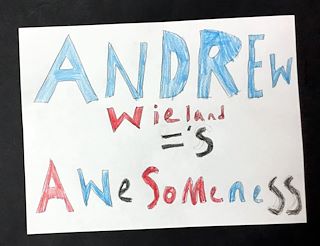 ANDREW
Wieland
='s
AWeSomeness